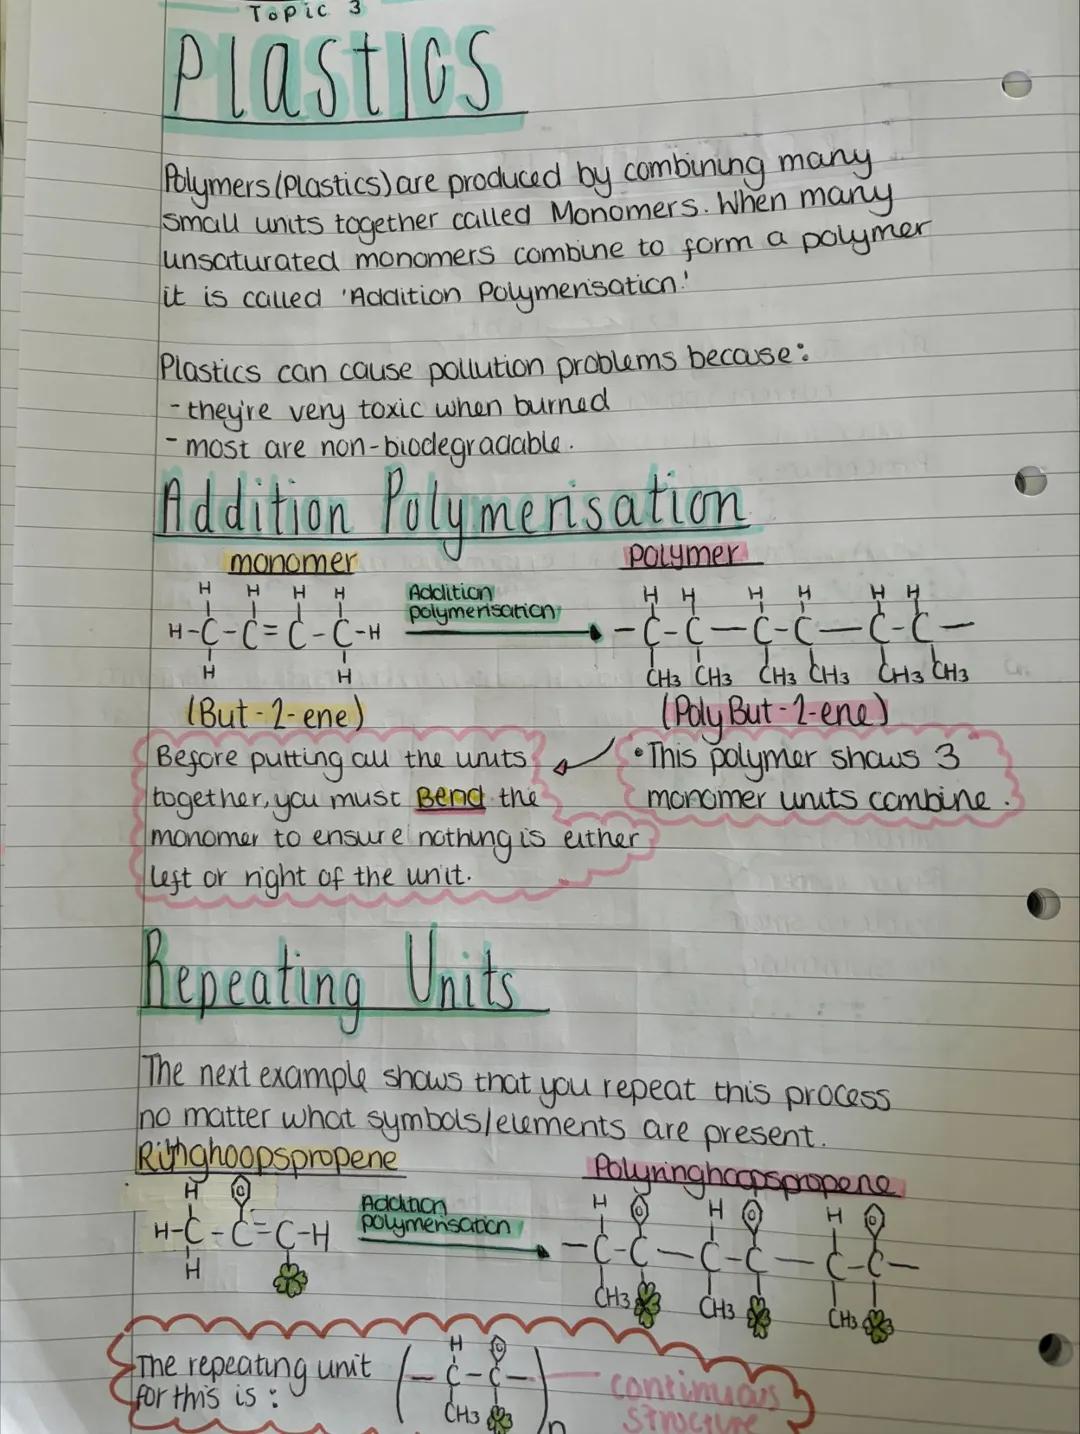 Topic 3
Plastics
Polymers (Plastics) are produced by combining many
small units together called Monomers. When many
unsaturated monomers combine to form a polymer
it is called 'Addition Polymerisation.'
Plastics can cause pollution problems because:
- they're very toxic when burned
- most are non-biodegradable.
Addition Polymerisation
monomer
polymer
H H H H
Addition
polymerisation
H H H H H H
H-C-C=C-C-H
-C-C-C-C-C-C-
H H
CH3 CH3 CH3 CH3 CH3 CH3
(But-2-ene)
(Poly But-2-ene)
Before putting all the units
together, you must Bend the
monomer to ensure nothing is either
left or right of the unit.
• This polymer shows 3
monomer units combine.
Repeating Units
The next example shows that you repeat this process
no matter what symbols/elements are present.
Ringhoopspropene
Polyringhoopspropene
H
Addition
polymerisation
H H H
H-C-C=C-H
-C-C-C-C-C-C-
H
CH3 CH3 CH3
The repeating unit
for this is:
H
(-C-C-)n
CH3
continuous
structure